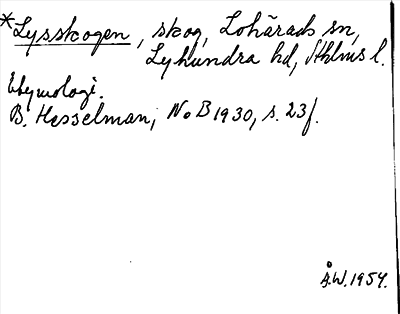 *Lysskogen, skog, Lohärads sn,
Lyhundra hd, Sthlms l.
Etymologi.
B. Hesselman, NoB 1930, s. 23f.
Å.W. 1954.